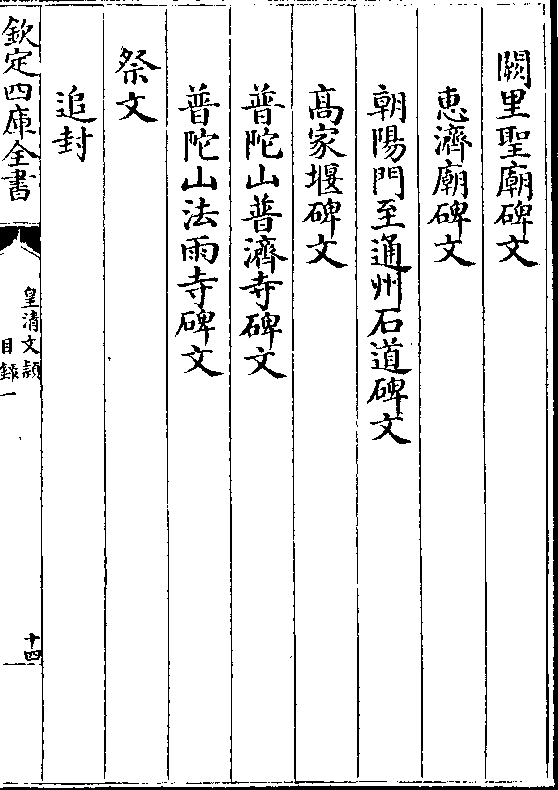 闕里聖廟碑文
惠濟廟碑文
朝陽門至通州石道碑文
高家堰碑文
普陀山普濟寺碑文
普陀山法雨寺碑文
祭文
追封
欽定四庫全書
皇清文頴
目録一
十四